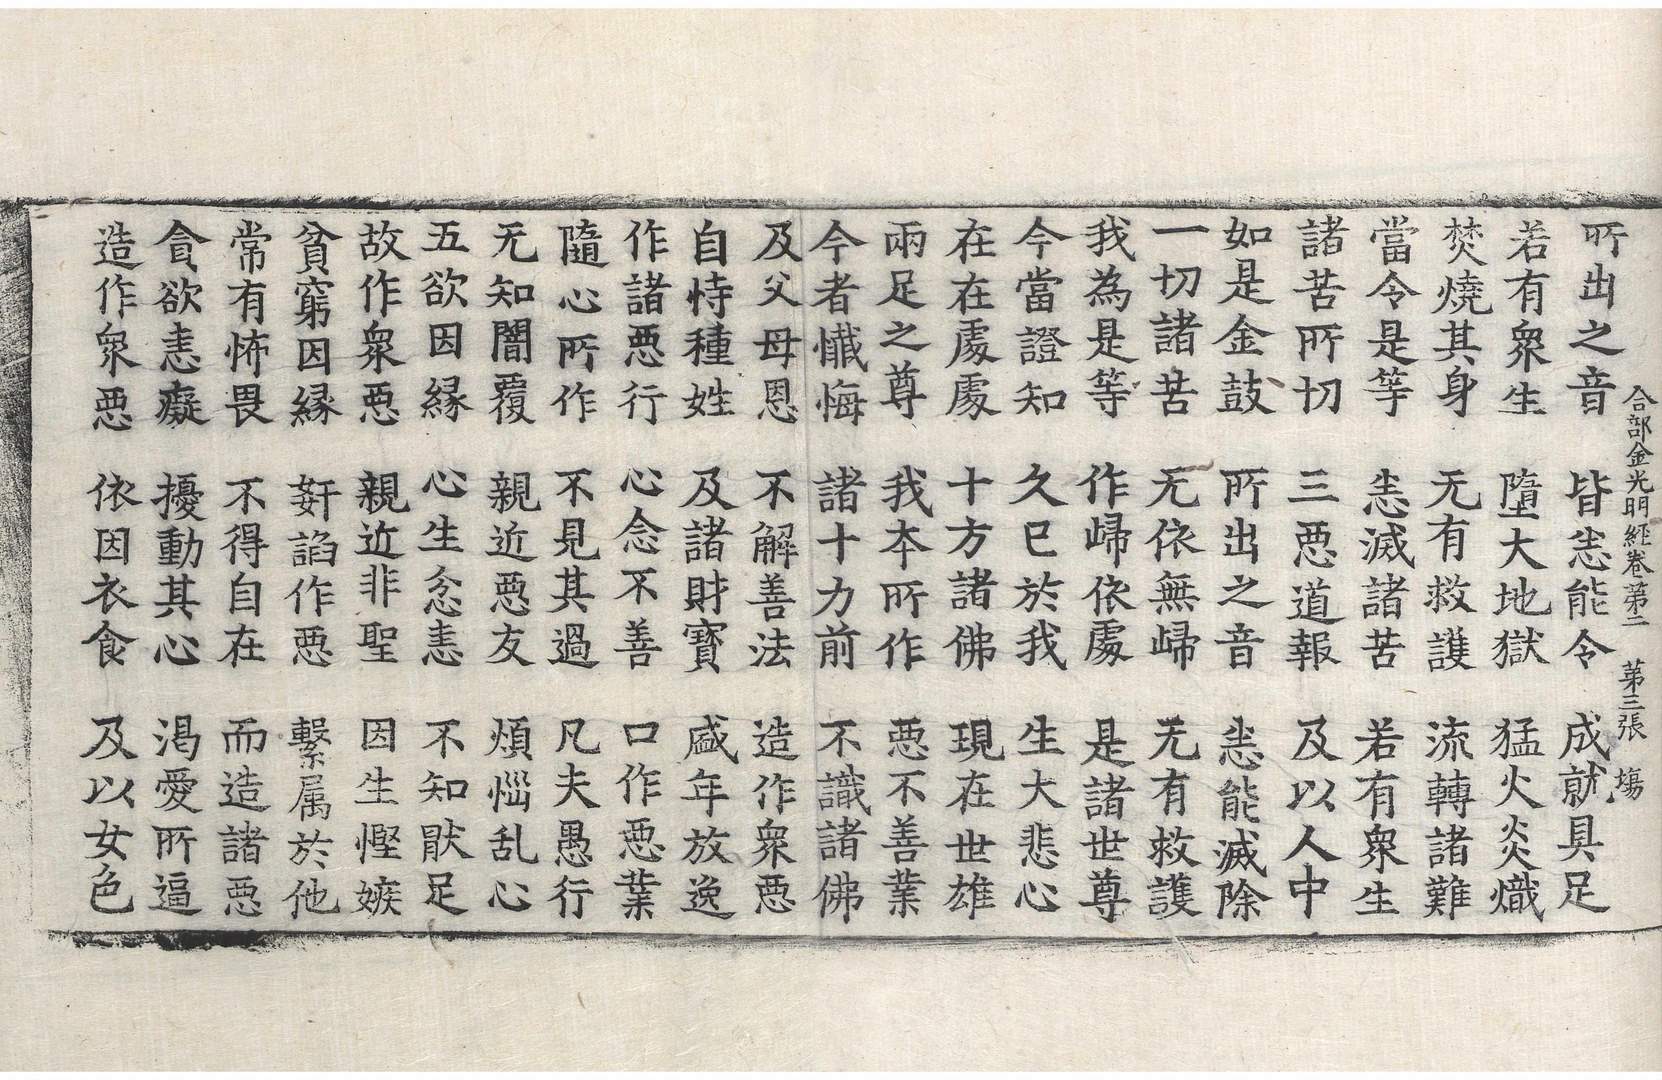 合部金光明經卷第二 第三張 塲
所出之音 皆悉能令 成就具足
若有衆生 墮大地獄 猛火炎熾
焚燒其身 无有救護 流轉諸難
當令是等 悉滅諸苦 若有衆生
諸苦所切 三惡道報 及以人中
如是金鼓 所出之音 悉能滅除
一切諸苦 无依無歸 无有救護
我為是等 作歸依處 是諸世尊
今當證知 久已於我 生大悲心
在在處處 十方諸佛 現在世雄
兩足之尊 我本所作 惡不善業
今者懺悔 諸十力前 不識諸佛
及父母恩 不解善法 造作衆惡
自恃種姓 及諸財寶 盛年放逸
作諸惡行 心念不善 口作惡業
隨心所作 不見其過 凡夫愚行
无知闇覆 親近惡友 煩惱乱心
五欲因縁 心生忿恚 不知猒足
故作衆惡 親近非聖 因生慳嫉
貧窮因縁 姧諂作惡 繫属於他
常有怖畏 不得自在 而造諸惡
貪欲恚癡 擾動其心 渴愛所逼
造作衆惡 依因衣食 及以女色